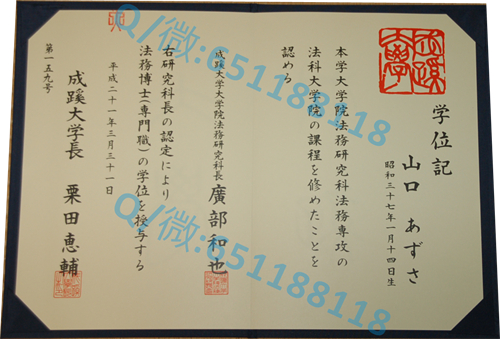 学位記
山口 あずさ
昭和三十七年一月十四日生
本学大学院法務研究科法務専攻の
法科大学院の課程を修めたことを
認める
成蹊大学大学院法務研究科長 廣部和也
右研究科長の認定により
法務博士(専門職)の学位を授与する
平成二十一年三月三十一日
成蹊大学長 栗田恵輔
第一五九号
成蹊大學
Q/微:651188118
Q/微:651188118